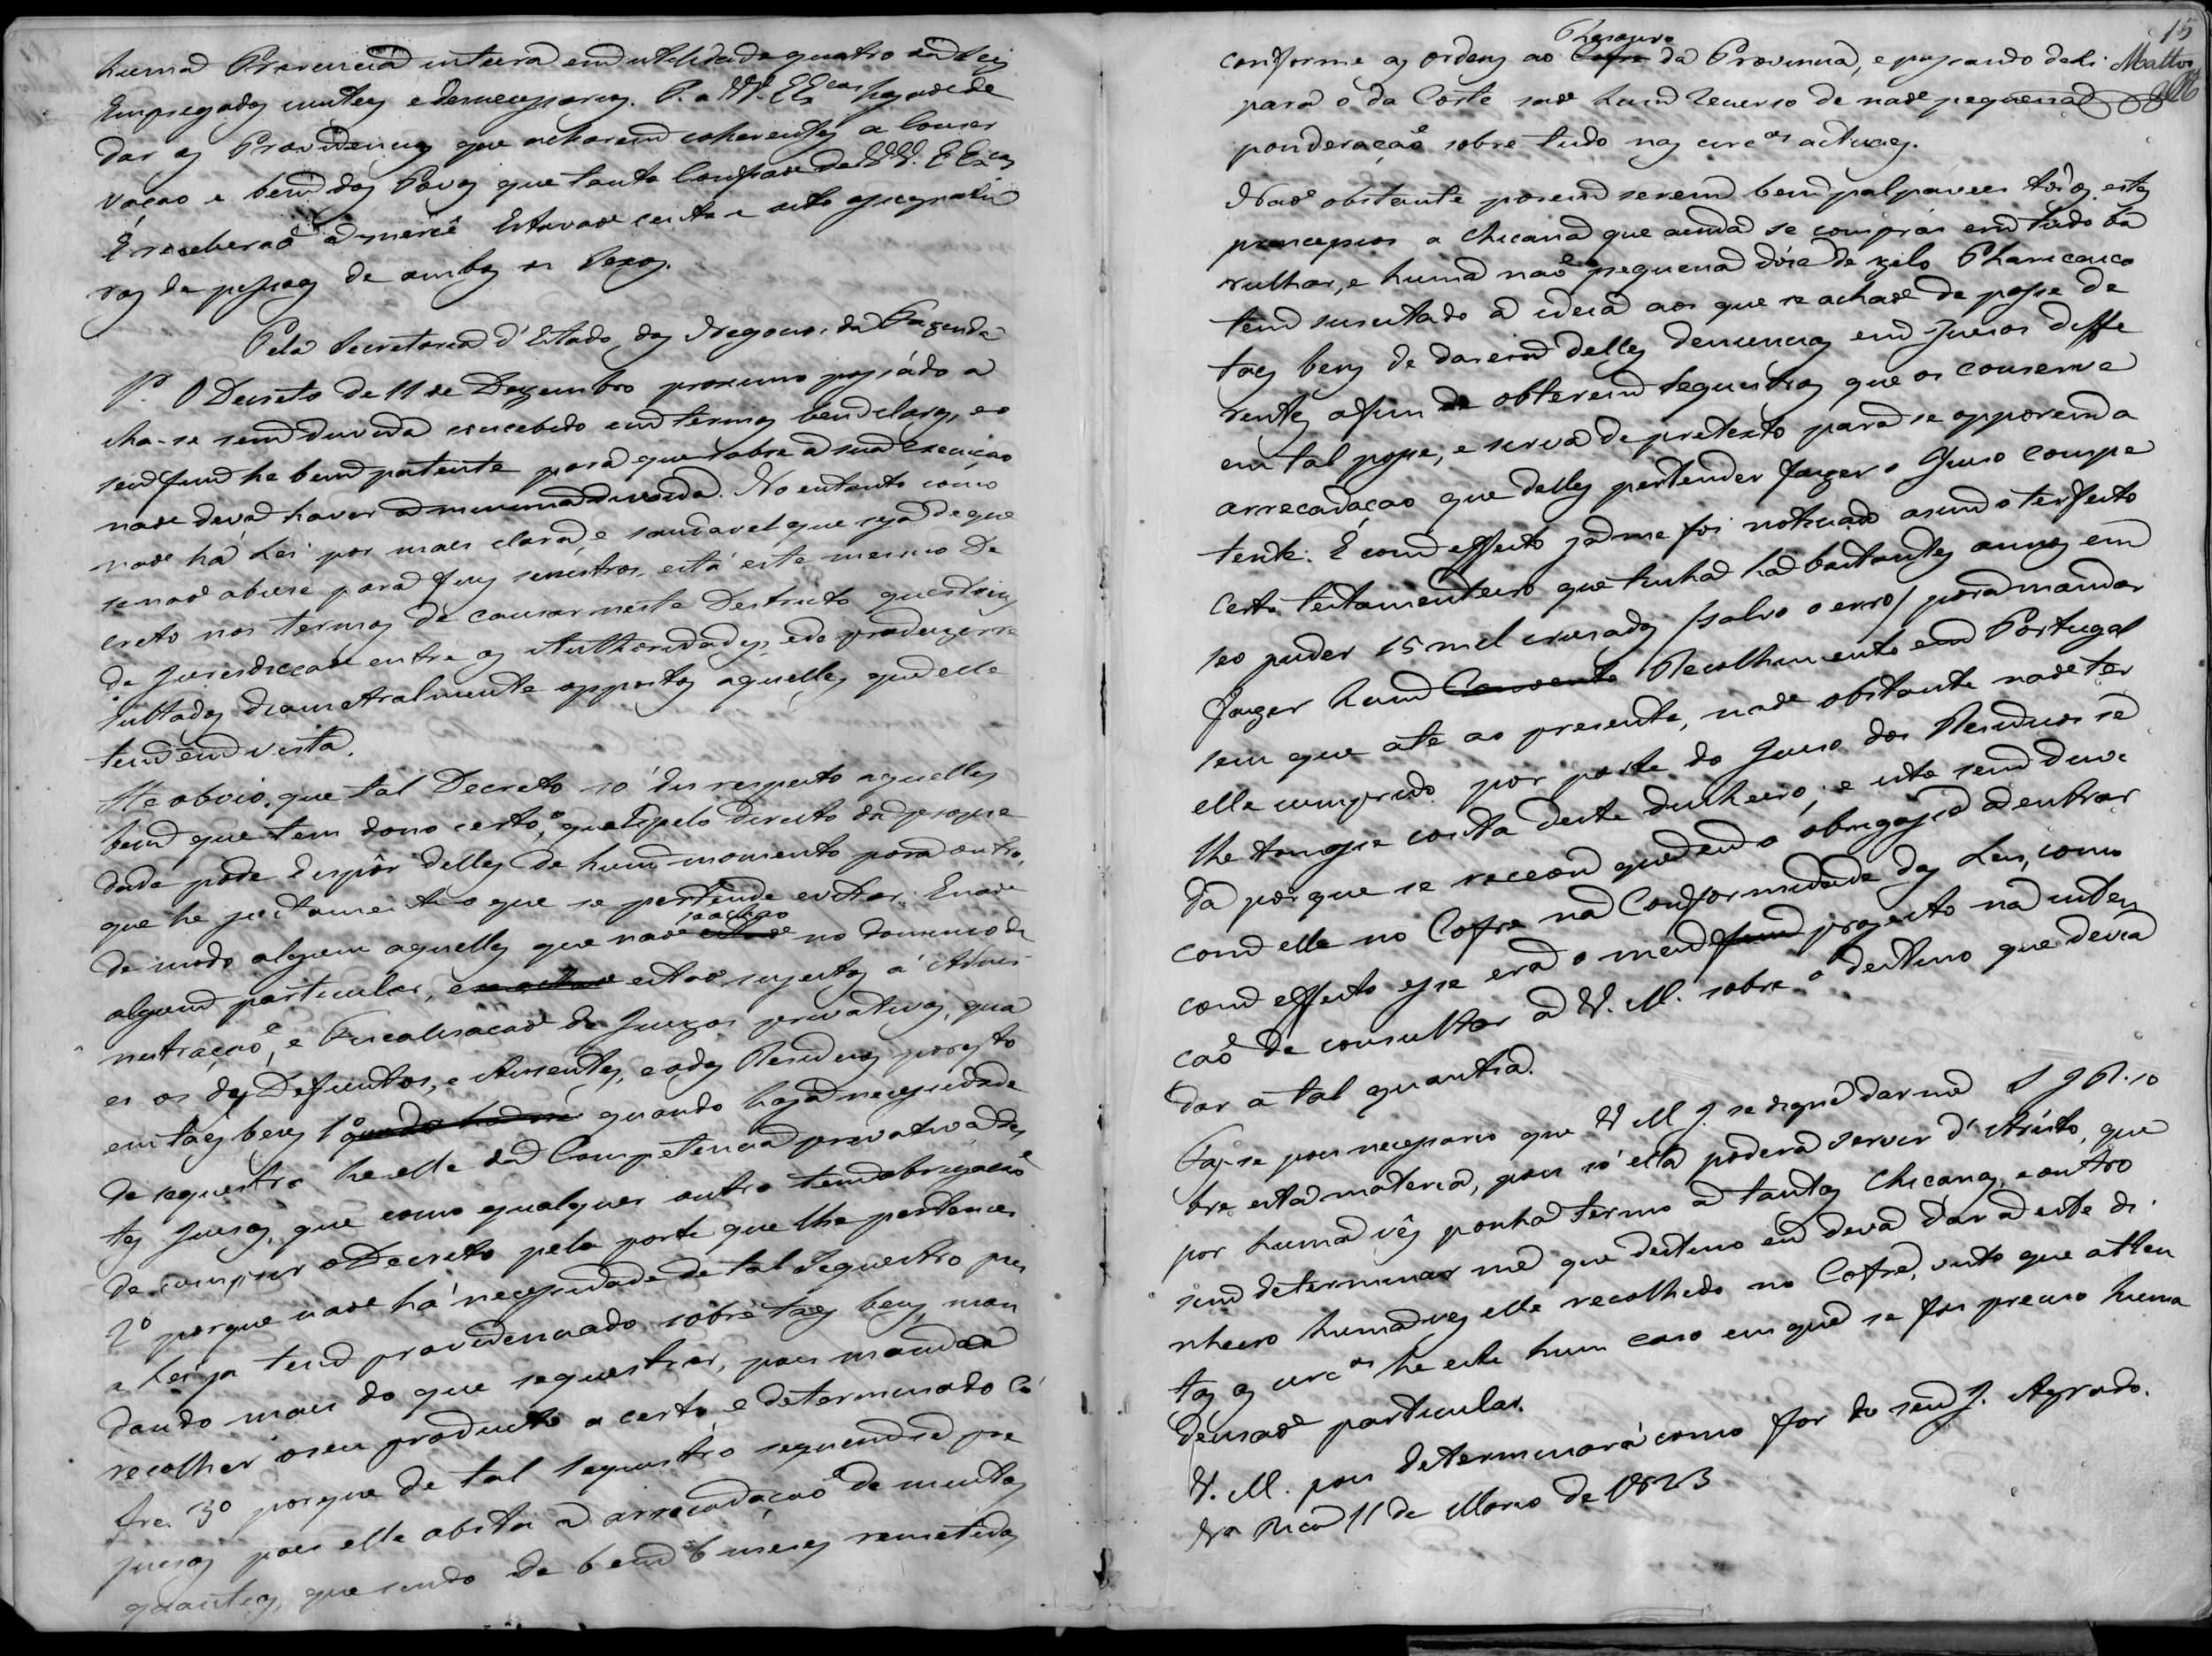 huma Provincia inteira em utilidade quatro ou seis
Empregados inuteis e desnecessarios. P. a VV. EExcas hajaõ de
dar as Providencias que acharem coherentes a Conser
vaçaõ e bem dos Povos que tanto Confiaõ de VV. EExcas
E receberaõ a mercê Estavaõ cento e oito assignatu
ras de pessoas de ambos os Sexos.
Pela Secretaria d'Estado dos Negocios da Fazenda
1º O Decreto de 11 de Dezembro proximo passádo a
cha-se sem duvida concebido em termos bem claros, e o
seu fim he bem patente para que sobre a sua Execuçaõ
naõ deva haver a minima duvida. No entanto como
naõ há Lei por mais clara, e saudavel que seja de que
se naõ abuse para fins senistros, está este mesmo De
creto nos termos de causar neste Destricto questoens
de Jurisdicçaõ entre as Authoridades, e de produzir re
sultados diametralmente oppostos aquelles, que elle
tem em vista.
He obvio, que tal Decreto só diz respeito aquelles
bens que tem dono certo, o qual pelo direito da proprie
dade póde dispôr delles de hum momento para outro,
que he justamente o que se pertende evitar. E naõ
de modo algum aquelles que naõ se achaõ no dominio de
algum particular, e estaõ sugeitos á Admi
nistraçaõ, e Fiscalisaçaõ de Juizos privativos, qua
es os dos Defuntos, e Auzentes, e o dos Residuos por q.to
em taes bens 1º quando haja necessidade
de sequestro he elle da Competencia privativa des
tes Juizos, que como qualquer outro tem obrigaçaõ
de cumprir o Decreto pela parte que lhe pertence
2º porque naõ há necessidade de tal Sequestro pois
a Lei ja tem providenciado sobre taes bens, man
dando mais do que sequestrar, pois manda
recolher o seu producto a certo, e determinado Co
fre. 3º porque de tal Sequestro seguem-se pre
juizos pois elle obsta a arrecadaçaõ de muitas
quantias, que sendo de 6 em 6 mezes remetidas
15
Mattos
conforme as ordens ao Thesouro da Provincia, e passando dali
para o da Corte saõ hum recurso de naõ pequena
ponderaçaõ sobre tudo nas circ.as actuaes.
Naõ obstante porem serem bem palpaveis tôdos estes
principios a chicana que ainda se compraz em tudo ba
rulhar, e huma naõ pequena dóse de zelo Pharisaico
tem suscitado a ideia aos que se achaõ de posse de
taes bens de darem delles denuncias em Juizos diffe
rentes afim de obterem Sequestros que os conserve
em tal posse, e sirva de pretexto para se opporem a
arrecadaçaõ que delles pertender fazer o Juizo compe
tente. E com effeito ja me foi noticiado assim o ter feito
Certo testamenteiro que tinha ha bastantes annos em
seo puder 15 mil cruzados (salvo o erro) para mandar
fazer hum Recolhimento em Portugal
sem que até ao presente, naõ obstante naõ ter
elle cumprido por parte do Juizo dos Residuos se
lhe tomasse conta deste dinheiro, e isto sem duvi
da porque se receou que eu o obrigasse a entrar
com elle no Cofre na Conformidade das Leis, como
com effeito esse era o meu projecto na inten
çaõ de consultar a V. M. sobre o destino que devia
dar a tal quantia.
Faz-se pois necessario que V. M. J. se digne dar me so
bre esta materia, pois só ella poderá servir d'Arésto, que
por huma vêz ponha termo a tantas Chicanas, e outro
sim determinar me que destino eu deva dar a este di
nheiro huma vez elle recolhido no Cofre, visto que atten
tas as circ.as he este hum caso em que se faz preciso huma
decisaõ particular.
V. M. pois determinará como for do seu J. Agrado.
Va Rica 11 de Março de 1823